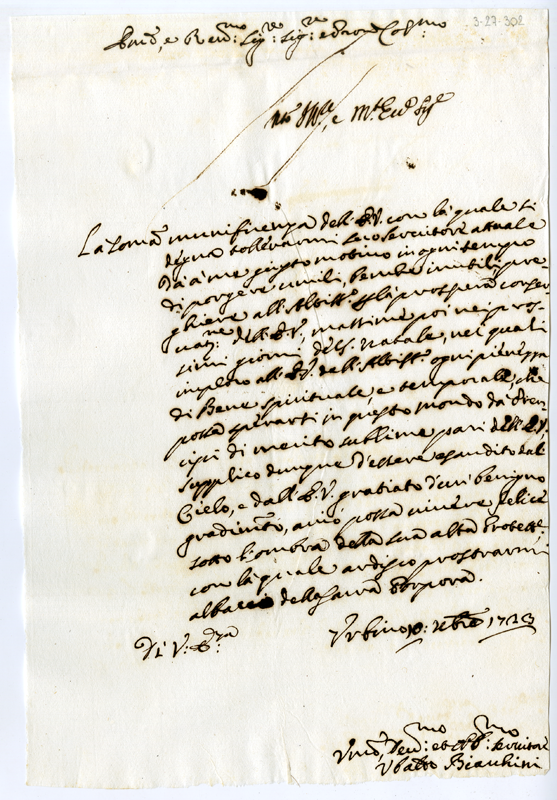 3-27-302
Em.º, e Rev.mo Sig.re Sig.re e Padron Col.mo
La somma munificenza dell'E.V. con la quale si
degna tollerarmi suo servitore attuale
dà a me giusto motivo in ogni tempo
di porgere umili, benche inutili pre-
ghiere all'Altiss.º p la prospera conser-
vaz.ne dell'E.V., massime poi nei pros-
simi giorni del S. Natale, nei quali
imploro all'E.V. dell'Altiss.º ogni pienezza
di Bene spirituale, e temporale, che
possa sperarsi in questo mondo da Prin-
cipi di merito sublime pari dell'E.V.
Supplico dunque d'essere esaudito dal
Cielo, e dall'E.V. gratiato d'un benigno
gradimento, acciò possa vivere felice
sotto l'ombra della sua alta Protett.e
con la quale ardisco prostrarmi
al bacio della sacra Porpora.
Di V. Em.za
Urbino 10: Xbre 1723
Um.º, Dev.mo et Obb.mo servitore
Ubaldo Bianchini